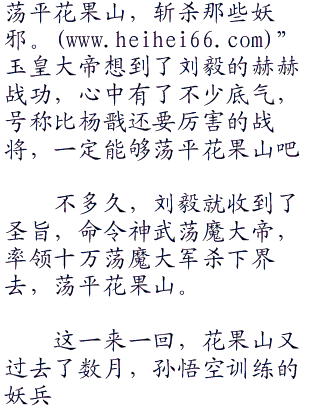 荡平花果山，斩杀那些妖
邪。(www.heihei66.com)”
玉皇大帝想到了刘毅的赫赫
战功，心中有了不少底气，
号称比杨戬还要厉害的战
将，一定能够荡平花果山吧
不多久，刘毅就收到了
圣旨，命令神武荡魔大帝，
率领十万荡魔大军杀下界
去，荡平花果山。
这一来一回，花果山又
过去了数月，孙悟空训练的
妖兵